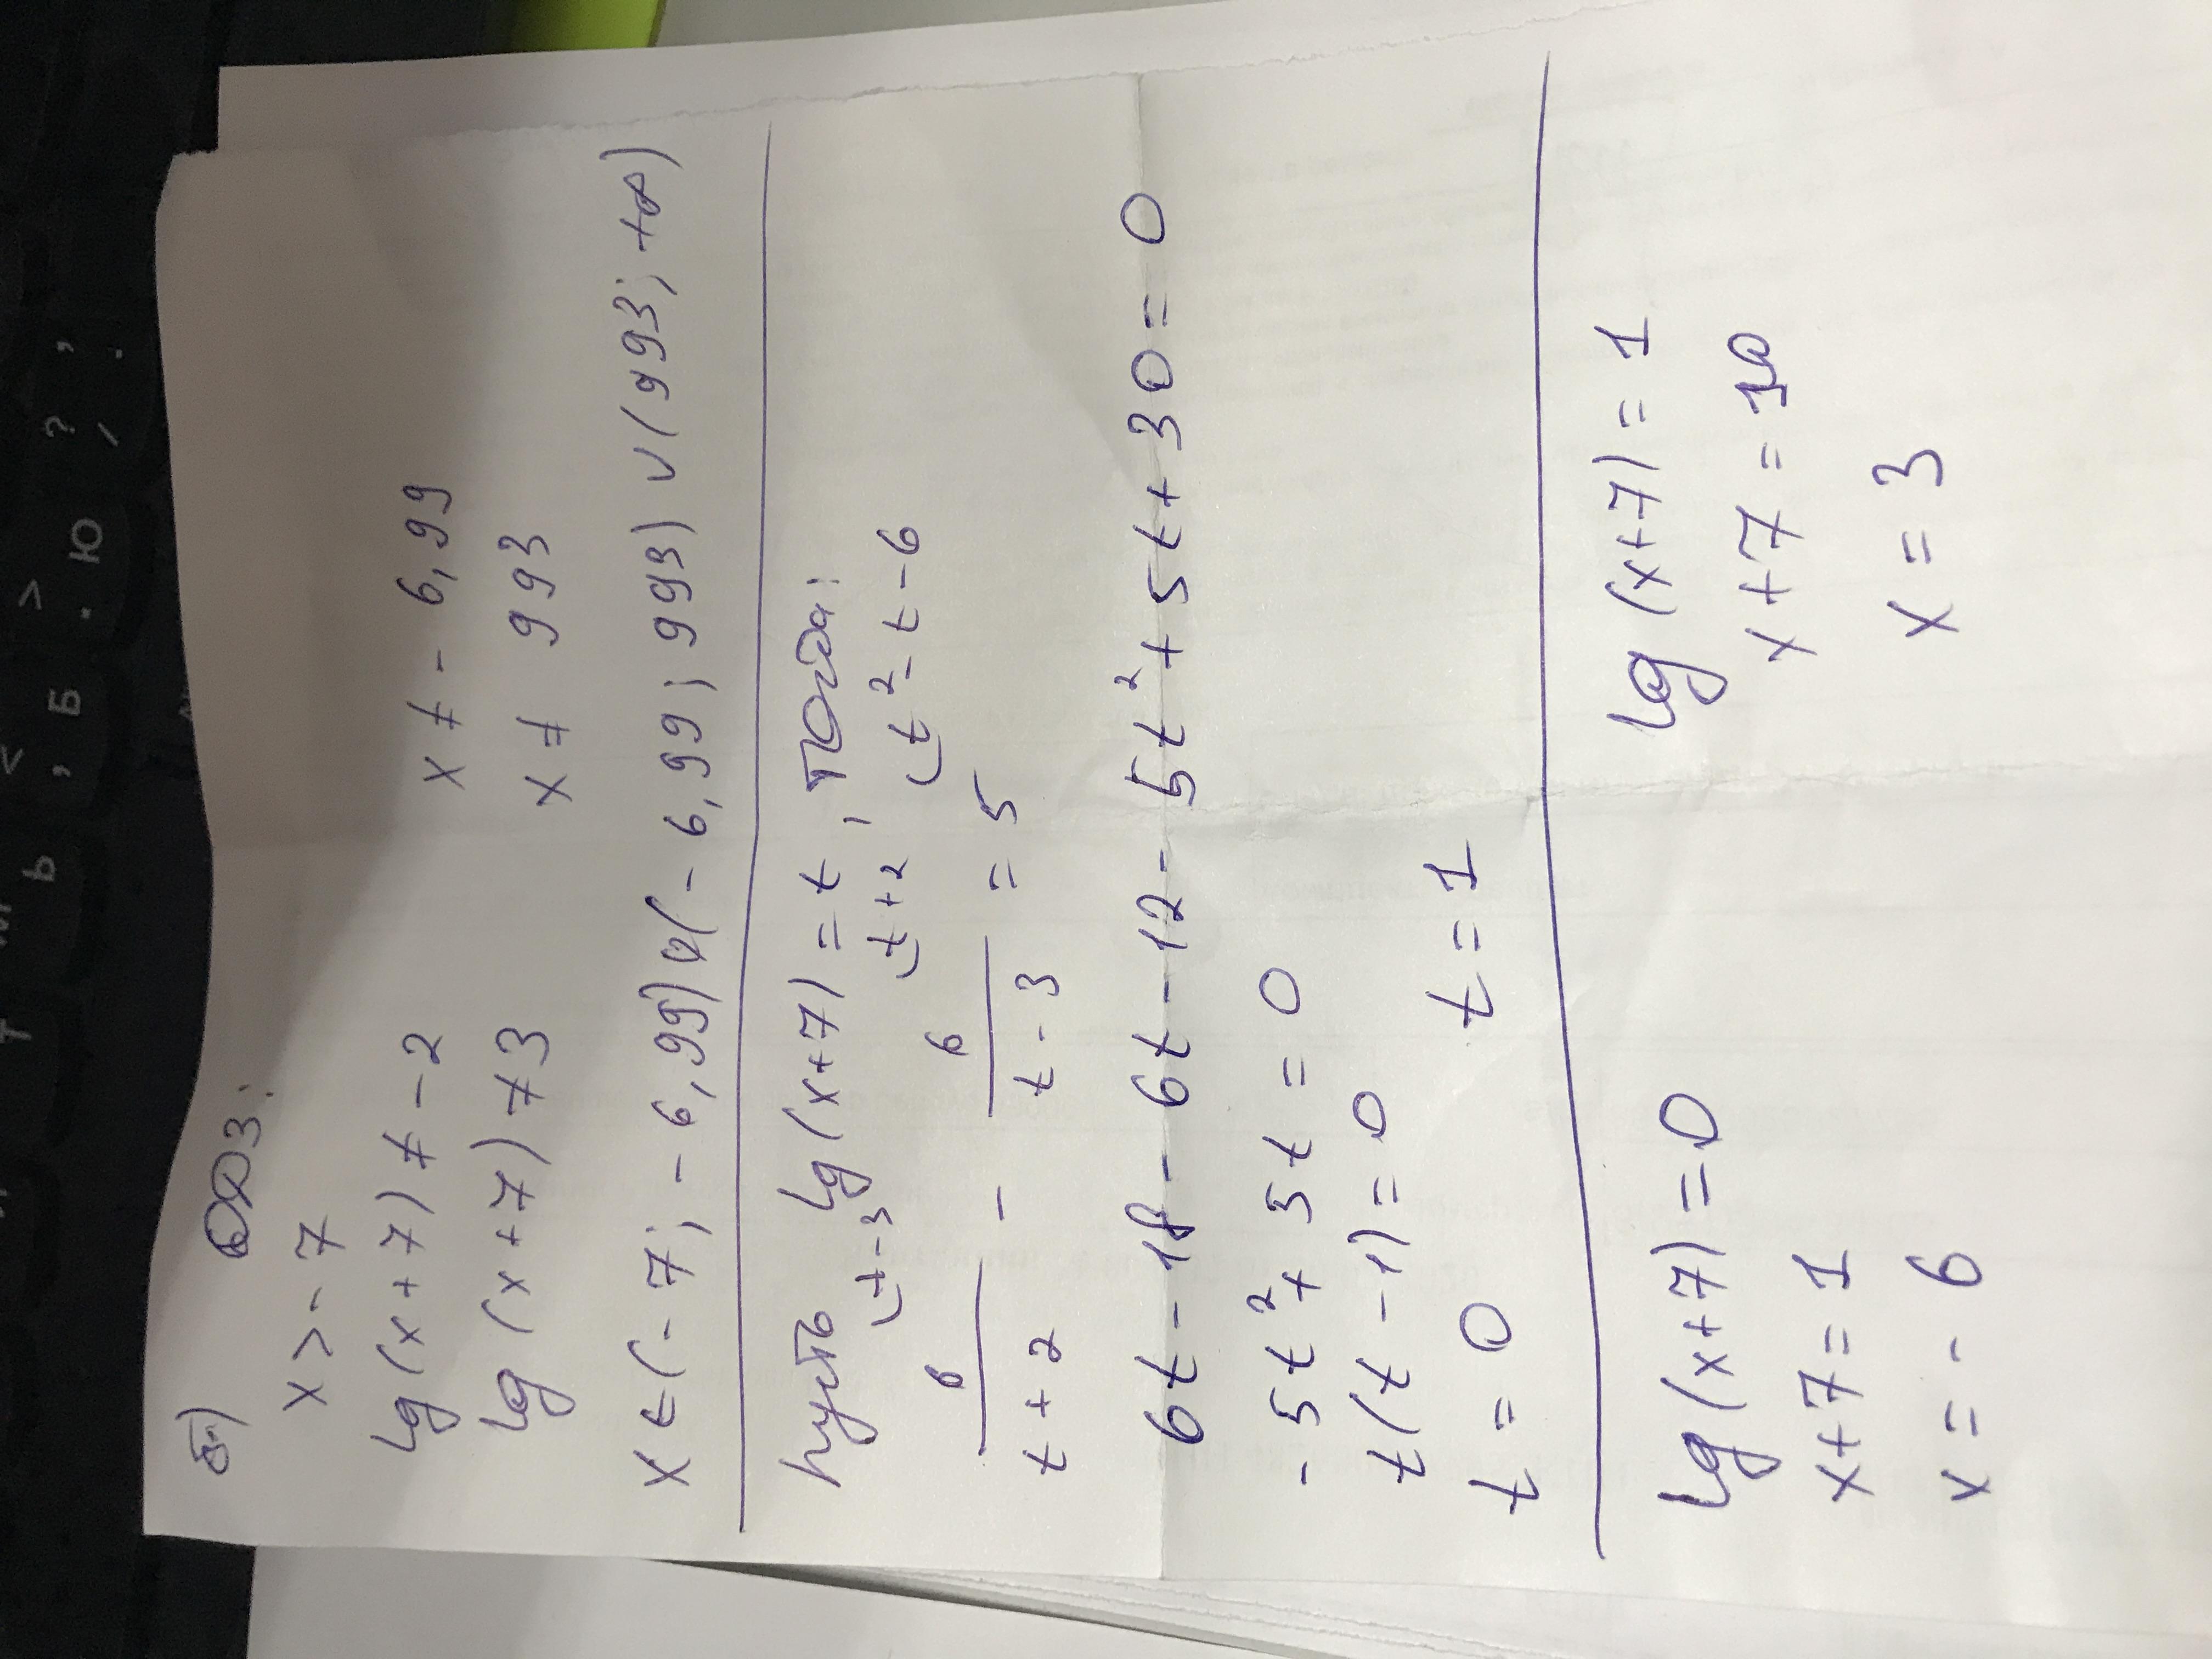 б) ОДЗ:
x > -7
lg(x+7) ≠ -2    x ≠ -6,99
lg(x+7) ≠ 3    x ≠ 993
x ∈ (-7; -6,99) ∪ (-6,99; 993) ∪ (993; +∞)
пусть lg(x+7) = t, тогда:
t-3    t+2    t²-t-6
6/(t+2) - 6/(t-3) = 5
6t - 18 - 6t - 12 - 5t² + 5t + 30 = 0
-5t² + 5t = 0
t(t-1) = 0
t = 0    t = 1
lg(x+7) = 0    lg(x+7) = 1
x+7 = 1    x+7 = 10
x = -6    x = 3